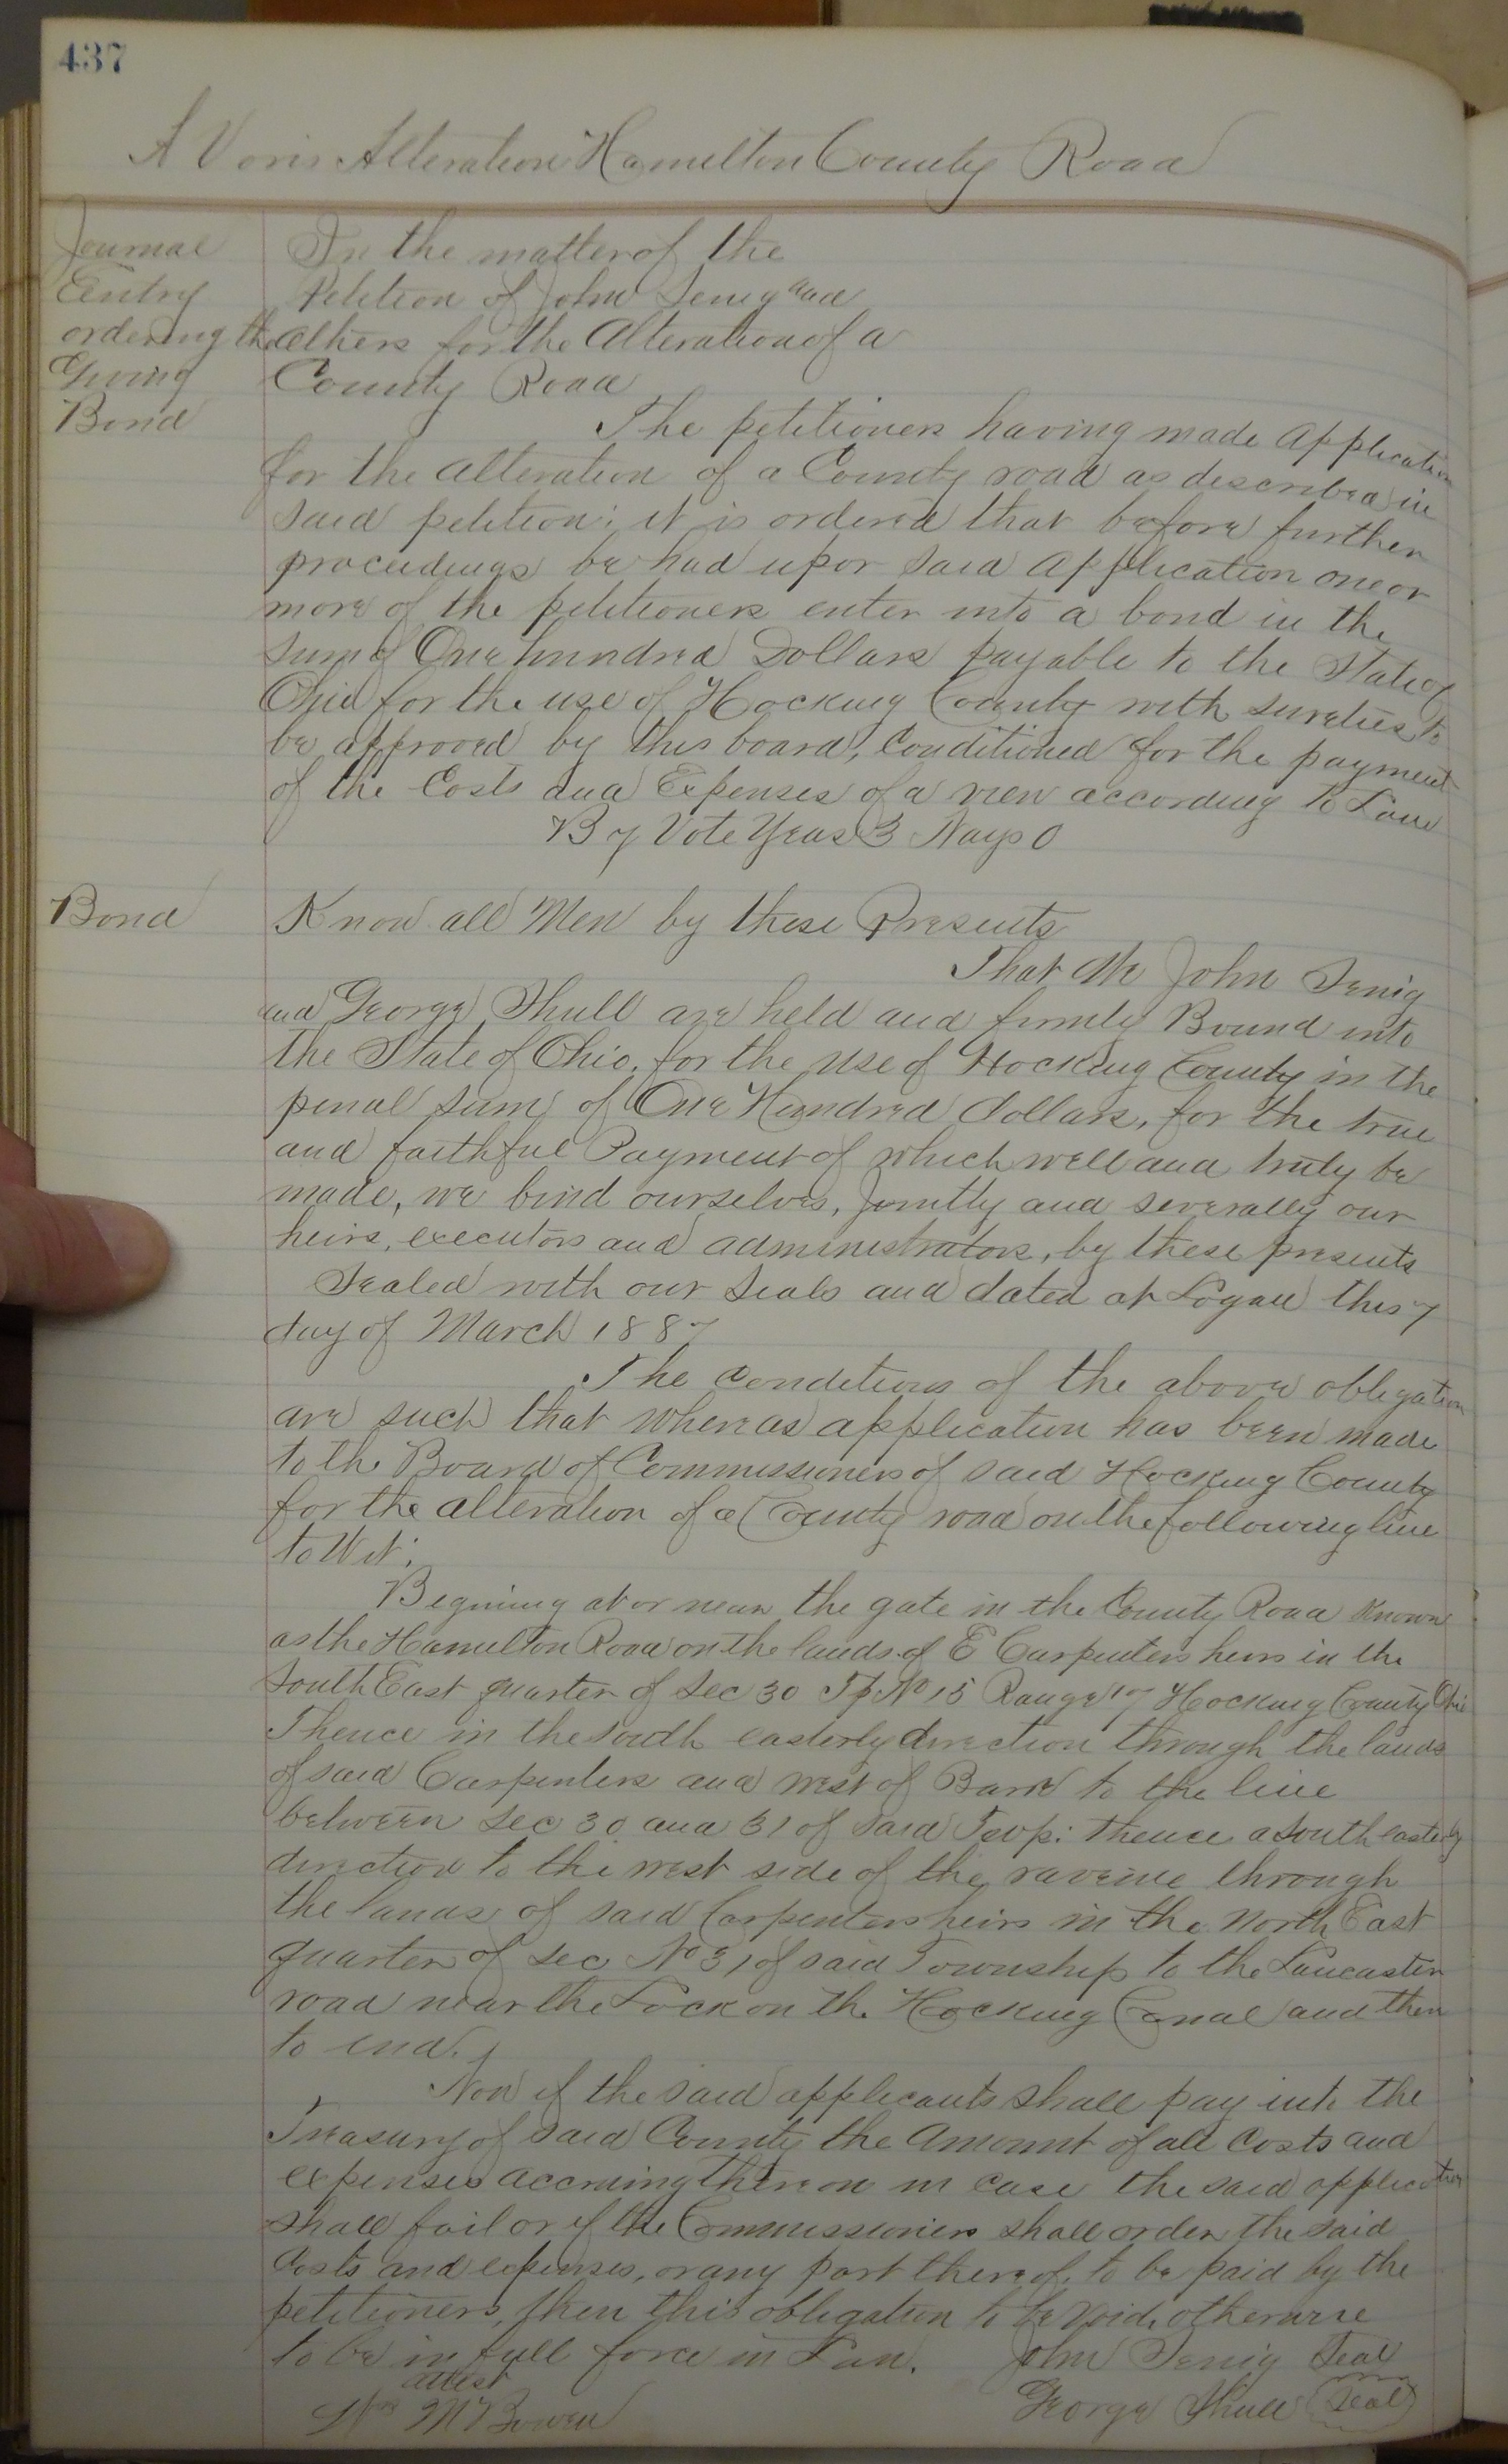 437
A Voris Alteration Hamilton County Road
Journal
Entry
ordering the
Giving
Bond
In the matter of the
Petition of John Senig and
others for the Alteration of a
County Road
The petitioners having made application
for the alteration of a County road as described in
said petition; it is ordered that before further
proceedings be had upon said application one or
more of the petitioners enter into a bond in the
Sum of One hundred Dollars payable to the State of
Ohio for the use of Hocking County with sureties to
be approved by this board, Conditioned for the payment
of the Costs and Expenses of a view according to Law
By Vote Yeas 3 Nays 0
Bond
Know all Men by these Presents
That We John Senig
and George Shull are held and firmly Bound into
the State of Ohio, for the use of Hocking County in the
penal sum of One Hundred dollars, for the true
and faithful Payment of which well and truly be
made, we bind ourselves, jointly and severally our
heirs, executors and administrators, by these presents
Sealed with our seals and dated at Logan this 7
day of March 1887
The Conditions of the above obligation
are such that whereas application has been made
to the Board of Commissioners of said Hocking County
for the alteration of a County road on the following line
to Wit:
Begining at or near the gate in the County Road known
as the Hamilton Road on the lands of E Carpenters heirs in the
South East quarter of Sec 30 Tp No 15 Range 17 Hocking County Ohio
Thence in the south easterly direction through the lands
of said Carpenters and west of Barn to the line
between Sec 30 and 31 of said Twp: thence a south easterly
direction to the west side of the ravine through
the lands of said Carpenters heirs in the North East
quarter of Sec No 31 of said Township to the Lancaster
road near the Lock on the Hocking Canal and then
to end.
Now if the said applicants shall pay into the
Treasury of said County the Amount of all Costs and
expenses accruing thereon in case the said application
shall fail or if the Commissioners shall order the said
Costs and expenses, or any part thereof, to be paid by the
petitioners, then this obligation to be void, otherwise
to be in full force in Law. John Senig Seal
attest George Shull Seal
Wm M Bowen